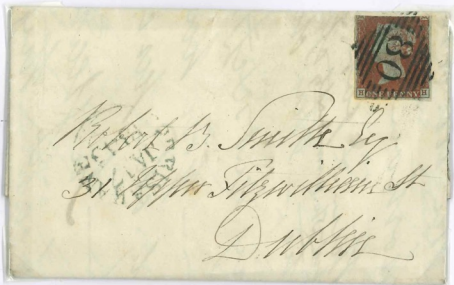 80
H ONE PENNY H
Robert B. Smith Esq
31 Upper Fitzwilliam St
Dublin